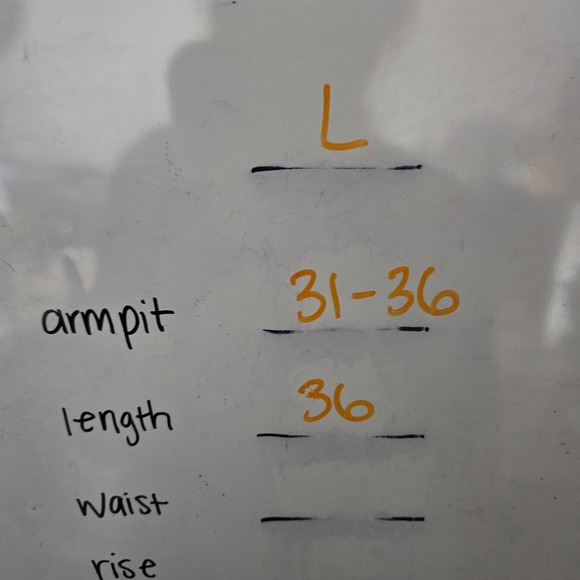 L
armpit 31-36
length 36
waist
rise